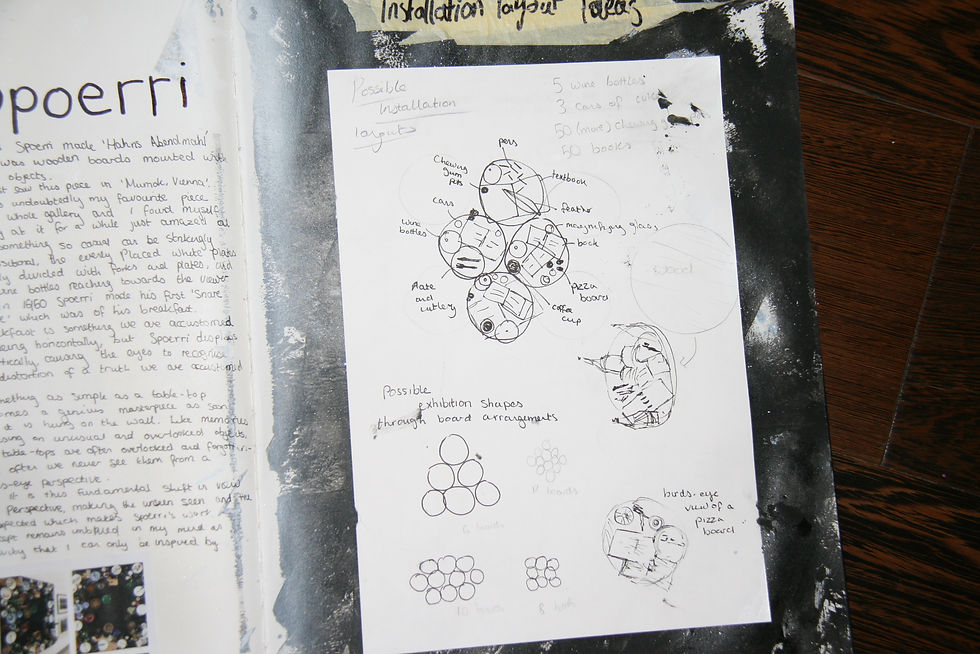 Spoerri
Spoerri made 'Hahn's Abendmahl'
was wooden boards mounted with
objects.
saw this piece in 'Mumok, Vienna',
undoubtedly my favourite piece
whole gallery and I found myself
at it for a while just amazed
something so casual can be strikingly
the evenly placed white plates
divided with forks and plates, and
bottles reaching towards the viewer
in 1960 Spoerri made his first 'Snare
which was of his breakfast.
is something we are accustomed
horizontally, but Spoerri displays
causing the eyes to recognise
distortion of a truth we are accustomed
as simple as a table-top
a genius masterpiece as soon
it is hung on the wall. Like memories
on unusual and overlooked objects,
table-tops are often overlooked and forgotten
after we never see them from a
eye perspective.
it is this fundamental shift in view
perspective, making the unseen seen and the
which makes Spoerri's work
remains imbedded in my mind as
that I can only be inspired by
Installation layout Ideas
Possible
Installation
layouts
5 wine bottles
3 cans of
50 (more) chewing
50 books
pens
Chewing
gum
pots
textbook
cans
feather
wine
bottles
magnifying glass
book
Plate
and
cutlery
pizza
board
coffee
cup
wood
Possible
exhibition shapes
through board arrangements
6 boards
11 boards
10 boards
8 boards
birds-eye
view of a
pizza
board